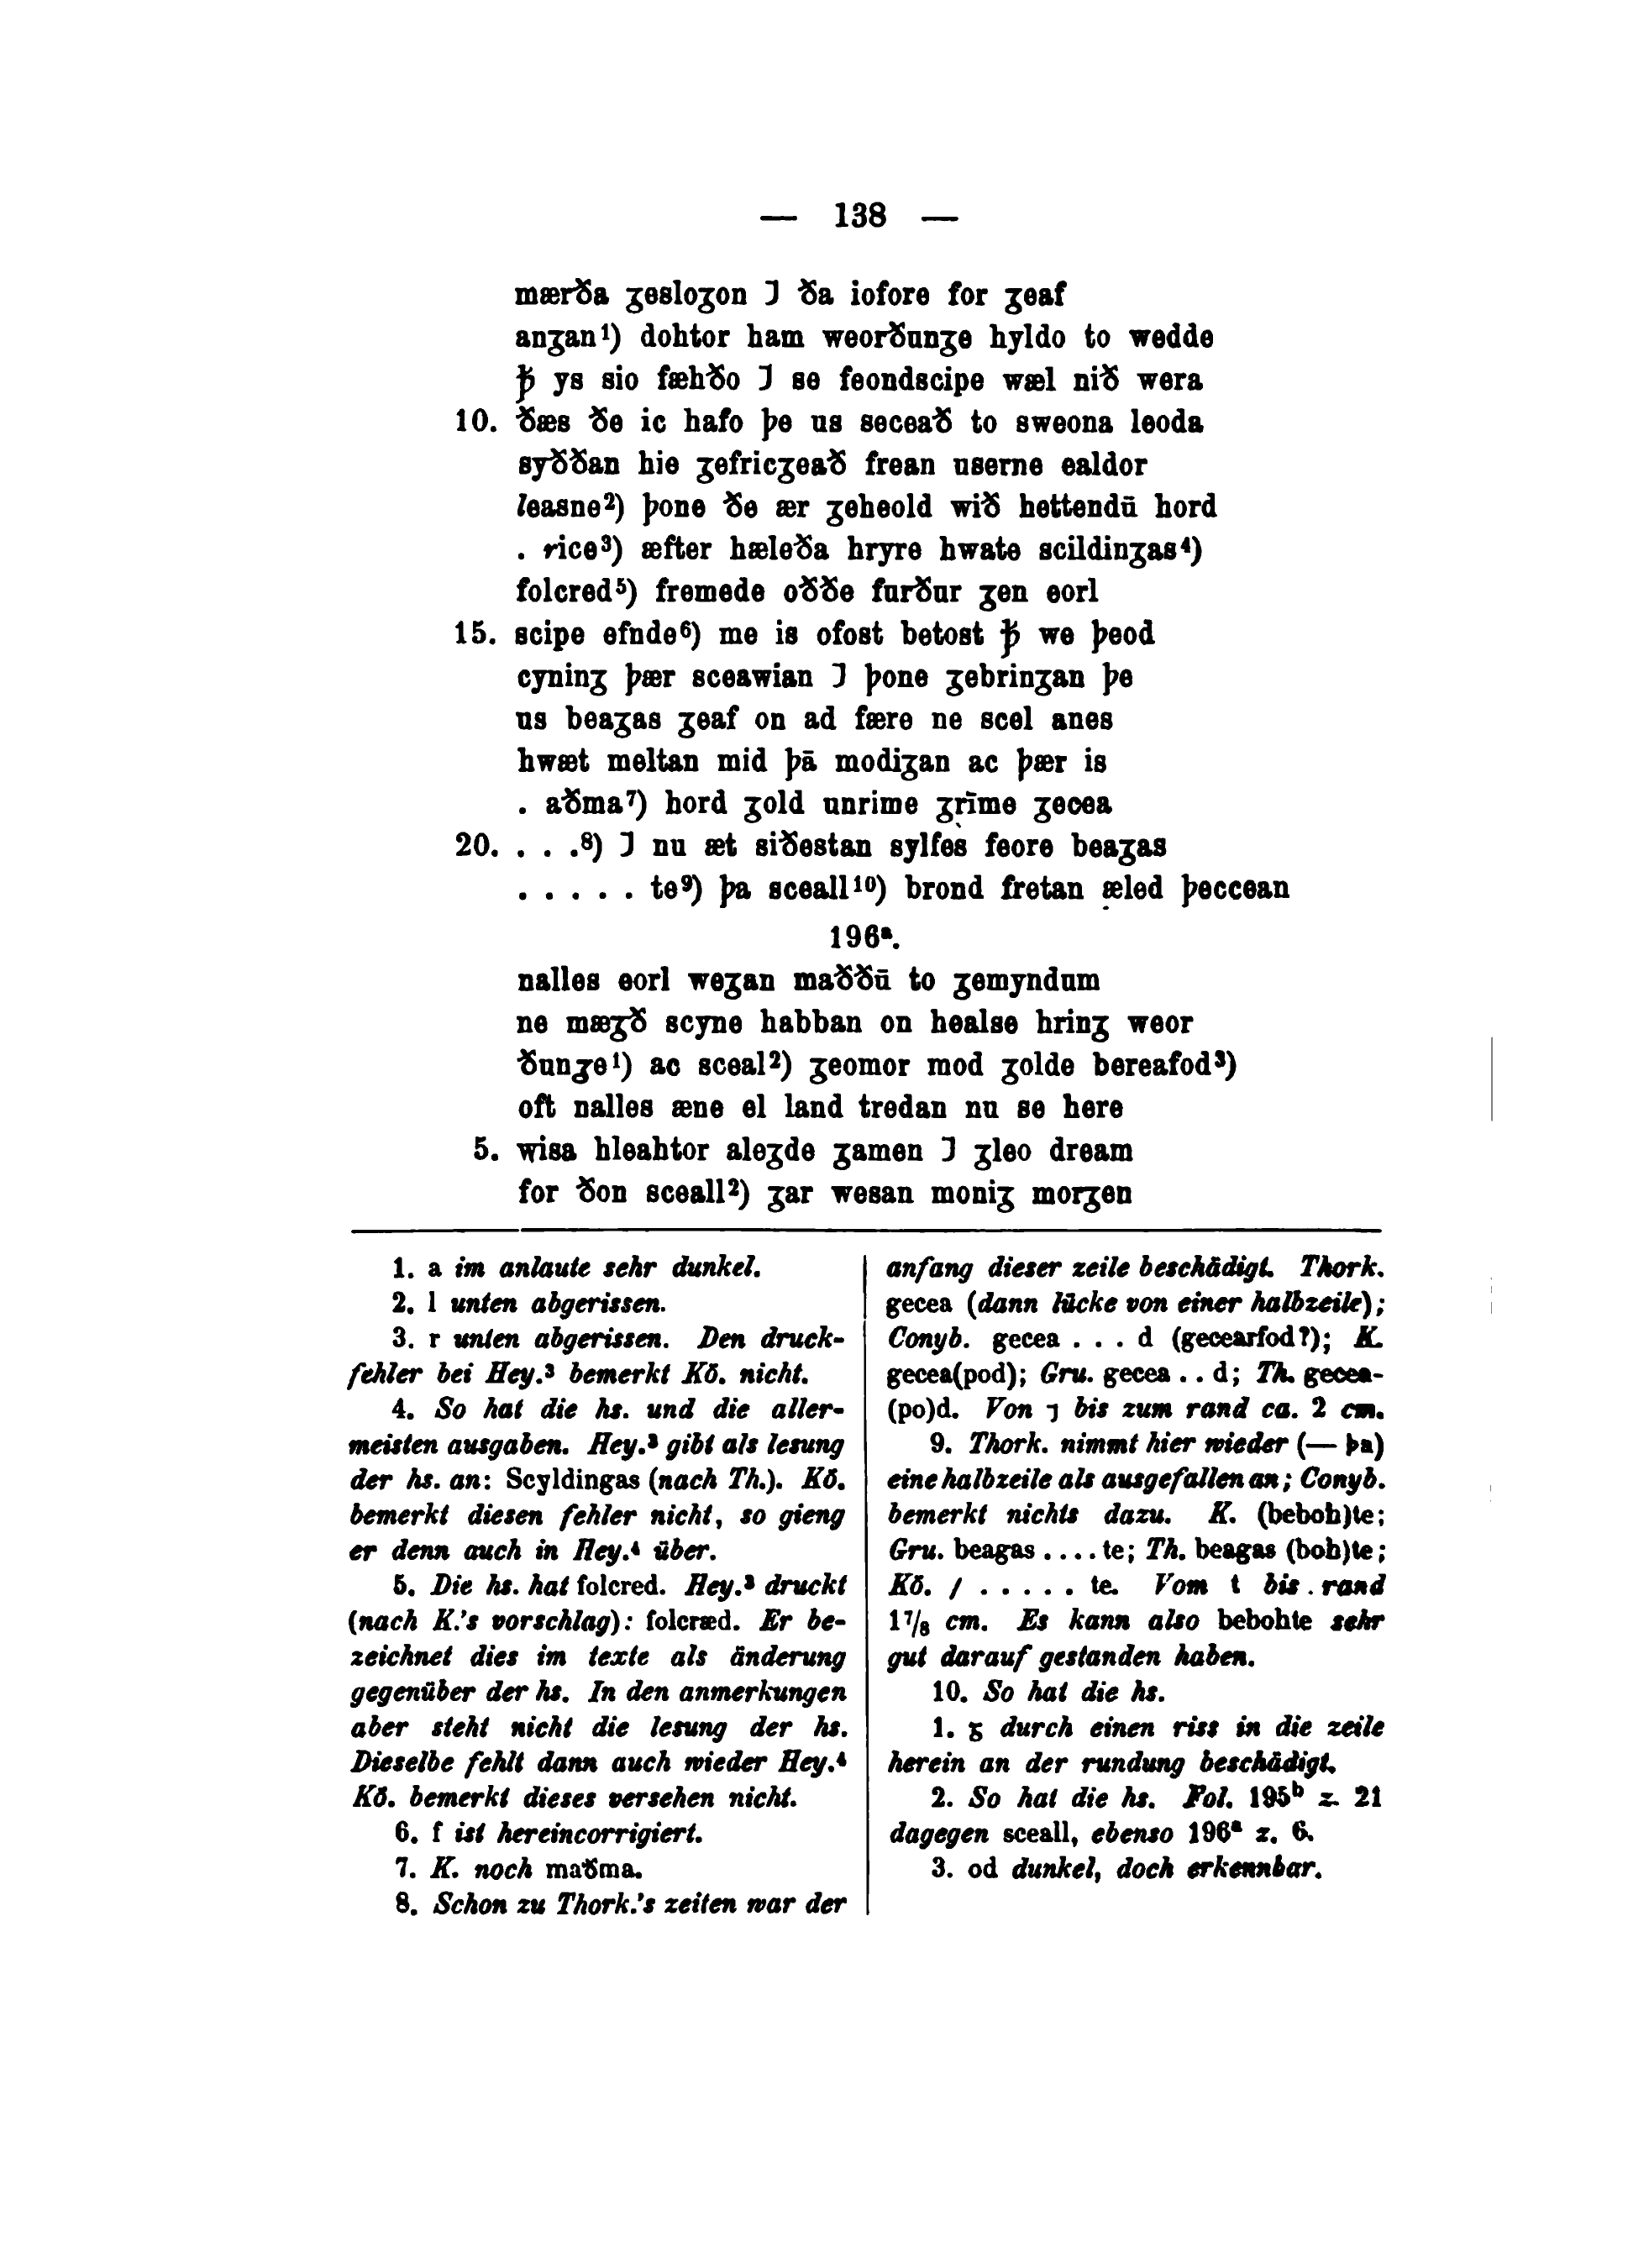 — 138 —
mærða ʒesloʒon ⁊ ða iofore for ʒeaf
anʒan¹) dohtor ham weorðunʒe hyldo to wedde
ꝥ ys sio fæhðo ⁊ se feondscipe wæl nið wera
10. ðæs ðe ic hafo þe us seceað to sweona leoda
syððan hie ʒefricʒeað frean userne ealdor
leasne²) þone ðe ær ʒeheold wið hettendū hord
. rice³) æfter hæleða hryre hwate scildinʒas⁴)
folcred⁵) fremede oððe furður ʒen eorl
15. scipe efnde⁶) me is ofost betost ꝥ we þeod
cyninʒ þær sceawian ⁊ þone ʒebrinʒan þe
us beaʒas ʒeaf on ad fære ne scel anes
hwæt meltan mid þā modiʒan ac þær is
. aðma⁷) hord ʒold unrime ʒrīme ʒecea
20. . . .⁸) ⁊ nu æt siðestan sylfes feore beaʒas
. . . . . te⁹) þa sceall¹⁰) brond fretan æled þeccean
196ᵃ.
nalles eorl weʒan maððū to ʒemyndum
ne mæʒð scyne habban on healse hrinʒ weor
ðunʒe¹) ac sceal²) ʒeomor mod ʒolde bereafod³)
oft nalles æne el land tredan nu se here
5. wisa hleahtor aleʒde ʒamen ⁊ ʒleo dream
for ðon sceall²) ʒar wesan moniʒ morʒen
1. a im anlaute sehr dunkel.
2. l unten abgerissen.
3. r unten abgerissen. Den druck-
fehler bei Hey.³ bemerkt Kö. nicht.
4. So hat die hs. und die aller-
meisten ausgaben. Hey.³ gibt als lesung
der hs. an: Scyldingas (nach Th.). Kö.
bemerkt diesen fehler nicht, so gieng
er denn auch in Hey.⁴ über.
5. Die hs. hat folcred. Hey.³ druckt
(nach K.'s vorschlag): folcræd. Er be-
zeichnet dies im texte als änderung
gegenüber der hs. In den anmerkungen
aber steht nicht die lesung der hs.
Dieselbe fehlt dann auch wieder Hey.⁴
Kö. bemerkt dieses versehen nicht.
6. f ist hereincorrigiert.
7. K. noch maðma.
8. Schon zu Thork.'s zeiten war der
anfang dieser zeile beschädigt. Thork.
gecea (dann lücke von einer halbzeile);
Conyb. gecea . . . d (gecearfod?); K.
gecea(pod); Gru. gecea . . d; Th. gecea-
(po)d. Von ⁊ bis zum rand ca. 2 cm.
9. Thork. nimmt hier wieder (— þa)
eine halbzeile als ausgefallen an; Conyb.
bemerkt nichts dazu. K. (beboh)te;
Gru. beagas . . . . te; Th. beagas (boh)te;
Kö. / . . . . . te. Vom t bis rand
1⁷/₈ cm. Es kann also bebohte sehr
gut darauf gestanden haben.
10. So hat die hs.
1. ʒ durch einen riss in die zeile
herein an der rundung beschädigt.
2. So hat die hs. Fol. 195ᵇ z. 21
dagegen sceall, ebenso 196ᵃ z. 6.
3. od dunkel, doch erkennbar.